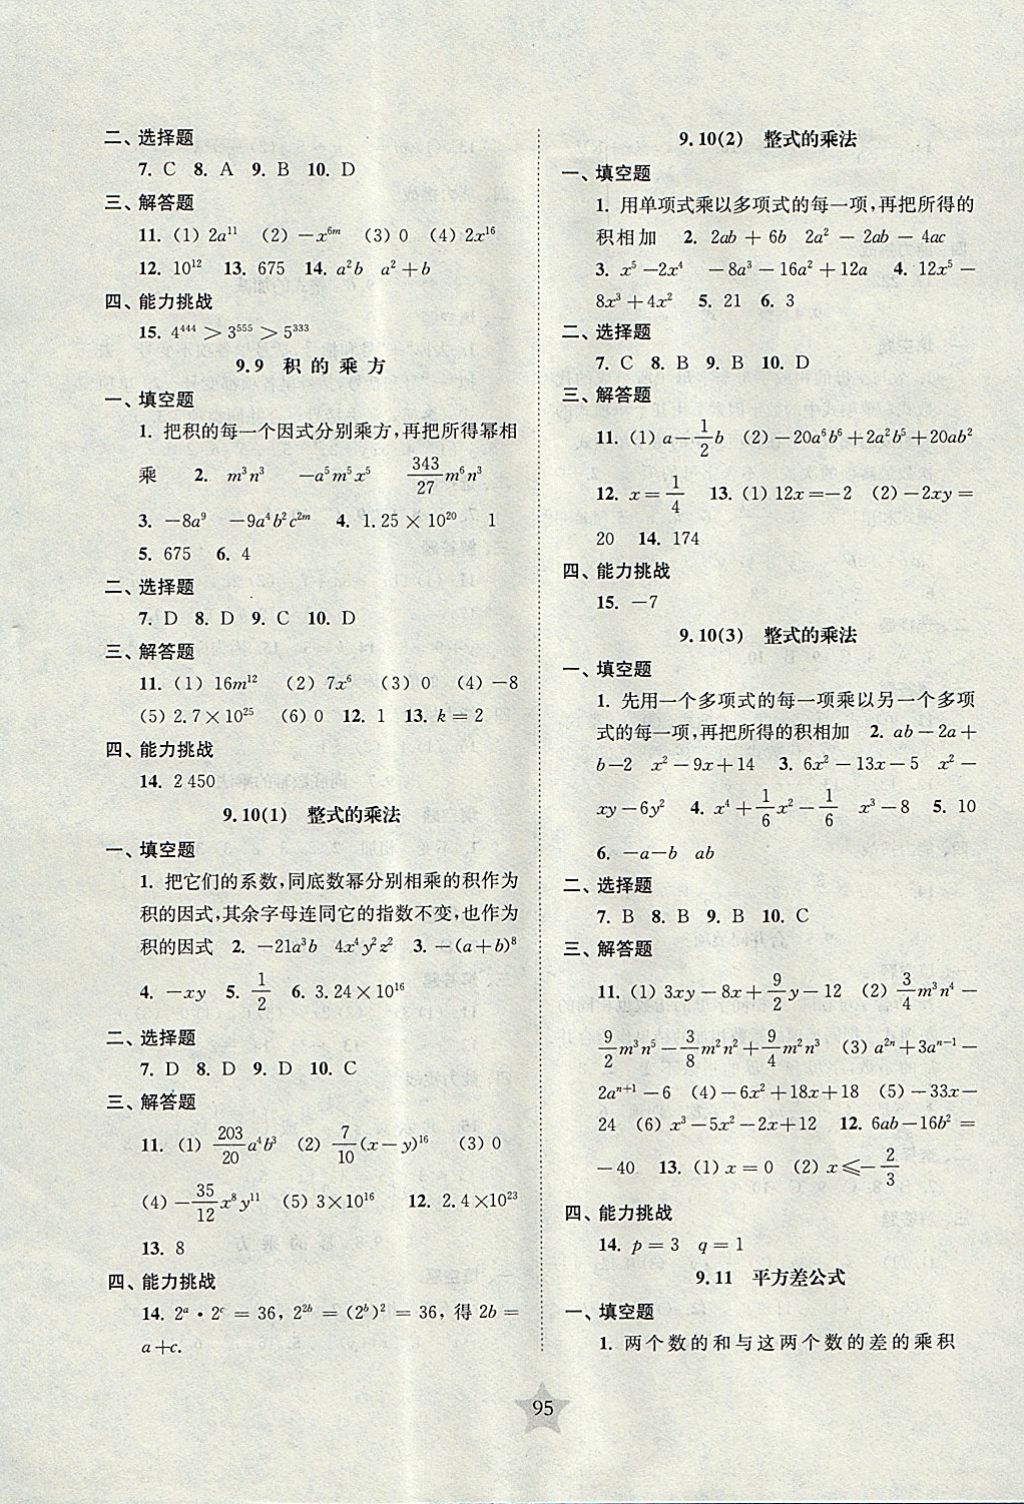 二、选择题
7. C 8. A 9. B 10. D
三、解答题
11. (1) 2a¹¹ (2) －x⁶ᵐ (3) 0 (4) 2x¹⁶
12. 10¹² 13. 675 14. a²b a²＋b
四、能力挑战
15. 4⁴⁴⁴＞3⁵⁵⁵＞5³³³
9.9 积的乘方
一、填空题
1. 把积的每一个因式分别乘方,再把所得幂相
乘 2. m³n³ －a⁵m⁵x⁵ 343/27 m⁶n³
3. －8a⁹ －9a⁴b²c²ᵐ 4. 1.25×10²⁰ 1
5. 675 6. 4
二、选择题
7. D 8. D 9. C 10. D
三、解答题
11. (1) 16m¹² (2) 7x⁶ (3) 0 (4) －8
(5) 2.7×10²⁵ (6) 0 12. 1 13. k＝2
四、能力挑战
14. 2 450
9.10(1) 整式的乘法
一、填空题
1. 把它们的系数,同底数幂分别相乘的积作为
积的因式,其余字母连同它的指数不变,也作为
积的因式 2. －21a³b 4x⁴y²z² 3. －(a＋b)⁸
4. －xy 5. 1/2 6. 3.24×10¹⁶
二、选择题
7. D 8. D 9. D 10. C
三、解答题
11. (1) 203/20 a⁴b³ (2) 7/10 (x－y)¹⁶ (3) 0
(4) －35/12 x⁸y¹¹ (5) 3×10¹⁶ 12. 2.4×10²³
13. 8
四、能力挑战
14. 2ᵃ·2ᶜ＝36, 2²ᵇ＝(2ᵇ)²＝36, 得 2b＝
a＋c.
9.10(2) 整式的乘法
一、填空题
1. 用单项式乘以多项式的每一项,再把所得的
积相加 2. 2ab＋6b 2a²－2ab－4ac
3. x⁵－2x⁴ －8a³－16a²＋12a 4. 12x⁵－
8x³＋4x² 5. 21 6. 3
二、选择题
7. C 8. B 9. B 10. D
三、解答题
11. (1) a－1/2 b (2) －20a⁶b⁶＋2a²b⁵＋20ab²
12. x＝1/4 13. (1) 12x＝－2 (2) －2xy＝
20 14. 174
四、能力挑战
15. －7
9.10(3) 整式的乘法
一、填空题
1. 先用一个多项式的每一项乘以另一个多项
式的每一项,再把所得的积相加 2. ab－2a＋
b－2 x²－9x＋14 3. 6x²－13x－5 x²－
xy－6y² 4. x⁴＋1/6 x²－1/6 x³－8 5. 10
6. －a－b ab
二、选择题
7. B 8. B 9. B 10. C
三、解答题
11. (1) 3xy－8x＋9/2 y－12 (2) 3/4 m³n⁴－
9/2 m³n⁵－3/8 m²n²＋9/4 m²n³ (3) a²ⁿ＋3aⁿ⁻¹－
2aⁿ⁺¹－6 (4) －6x²＋18x＋18 (5) －33x－
24 (6) x³－5x²－2x＋12 12. 6ab－16b²＝
－40 13. (1) x＝0 (2) x≤－2/3
四、能力挑战
14. p＝3 q＝1
9.11 平方差公式
一、填空题
1. 两个数的和与这两个数的差的乘积
95